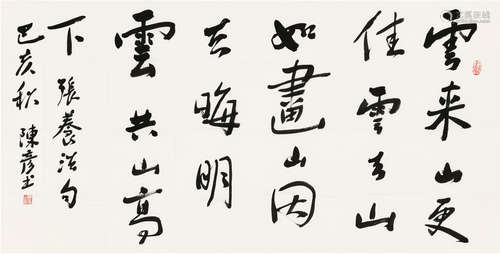 雲来山更
佳雲去山
如畫山因
雲晦明
雲共山高
下 張養浩句
己亥秋 陳彦书